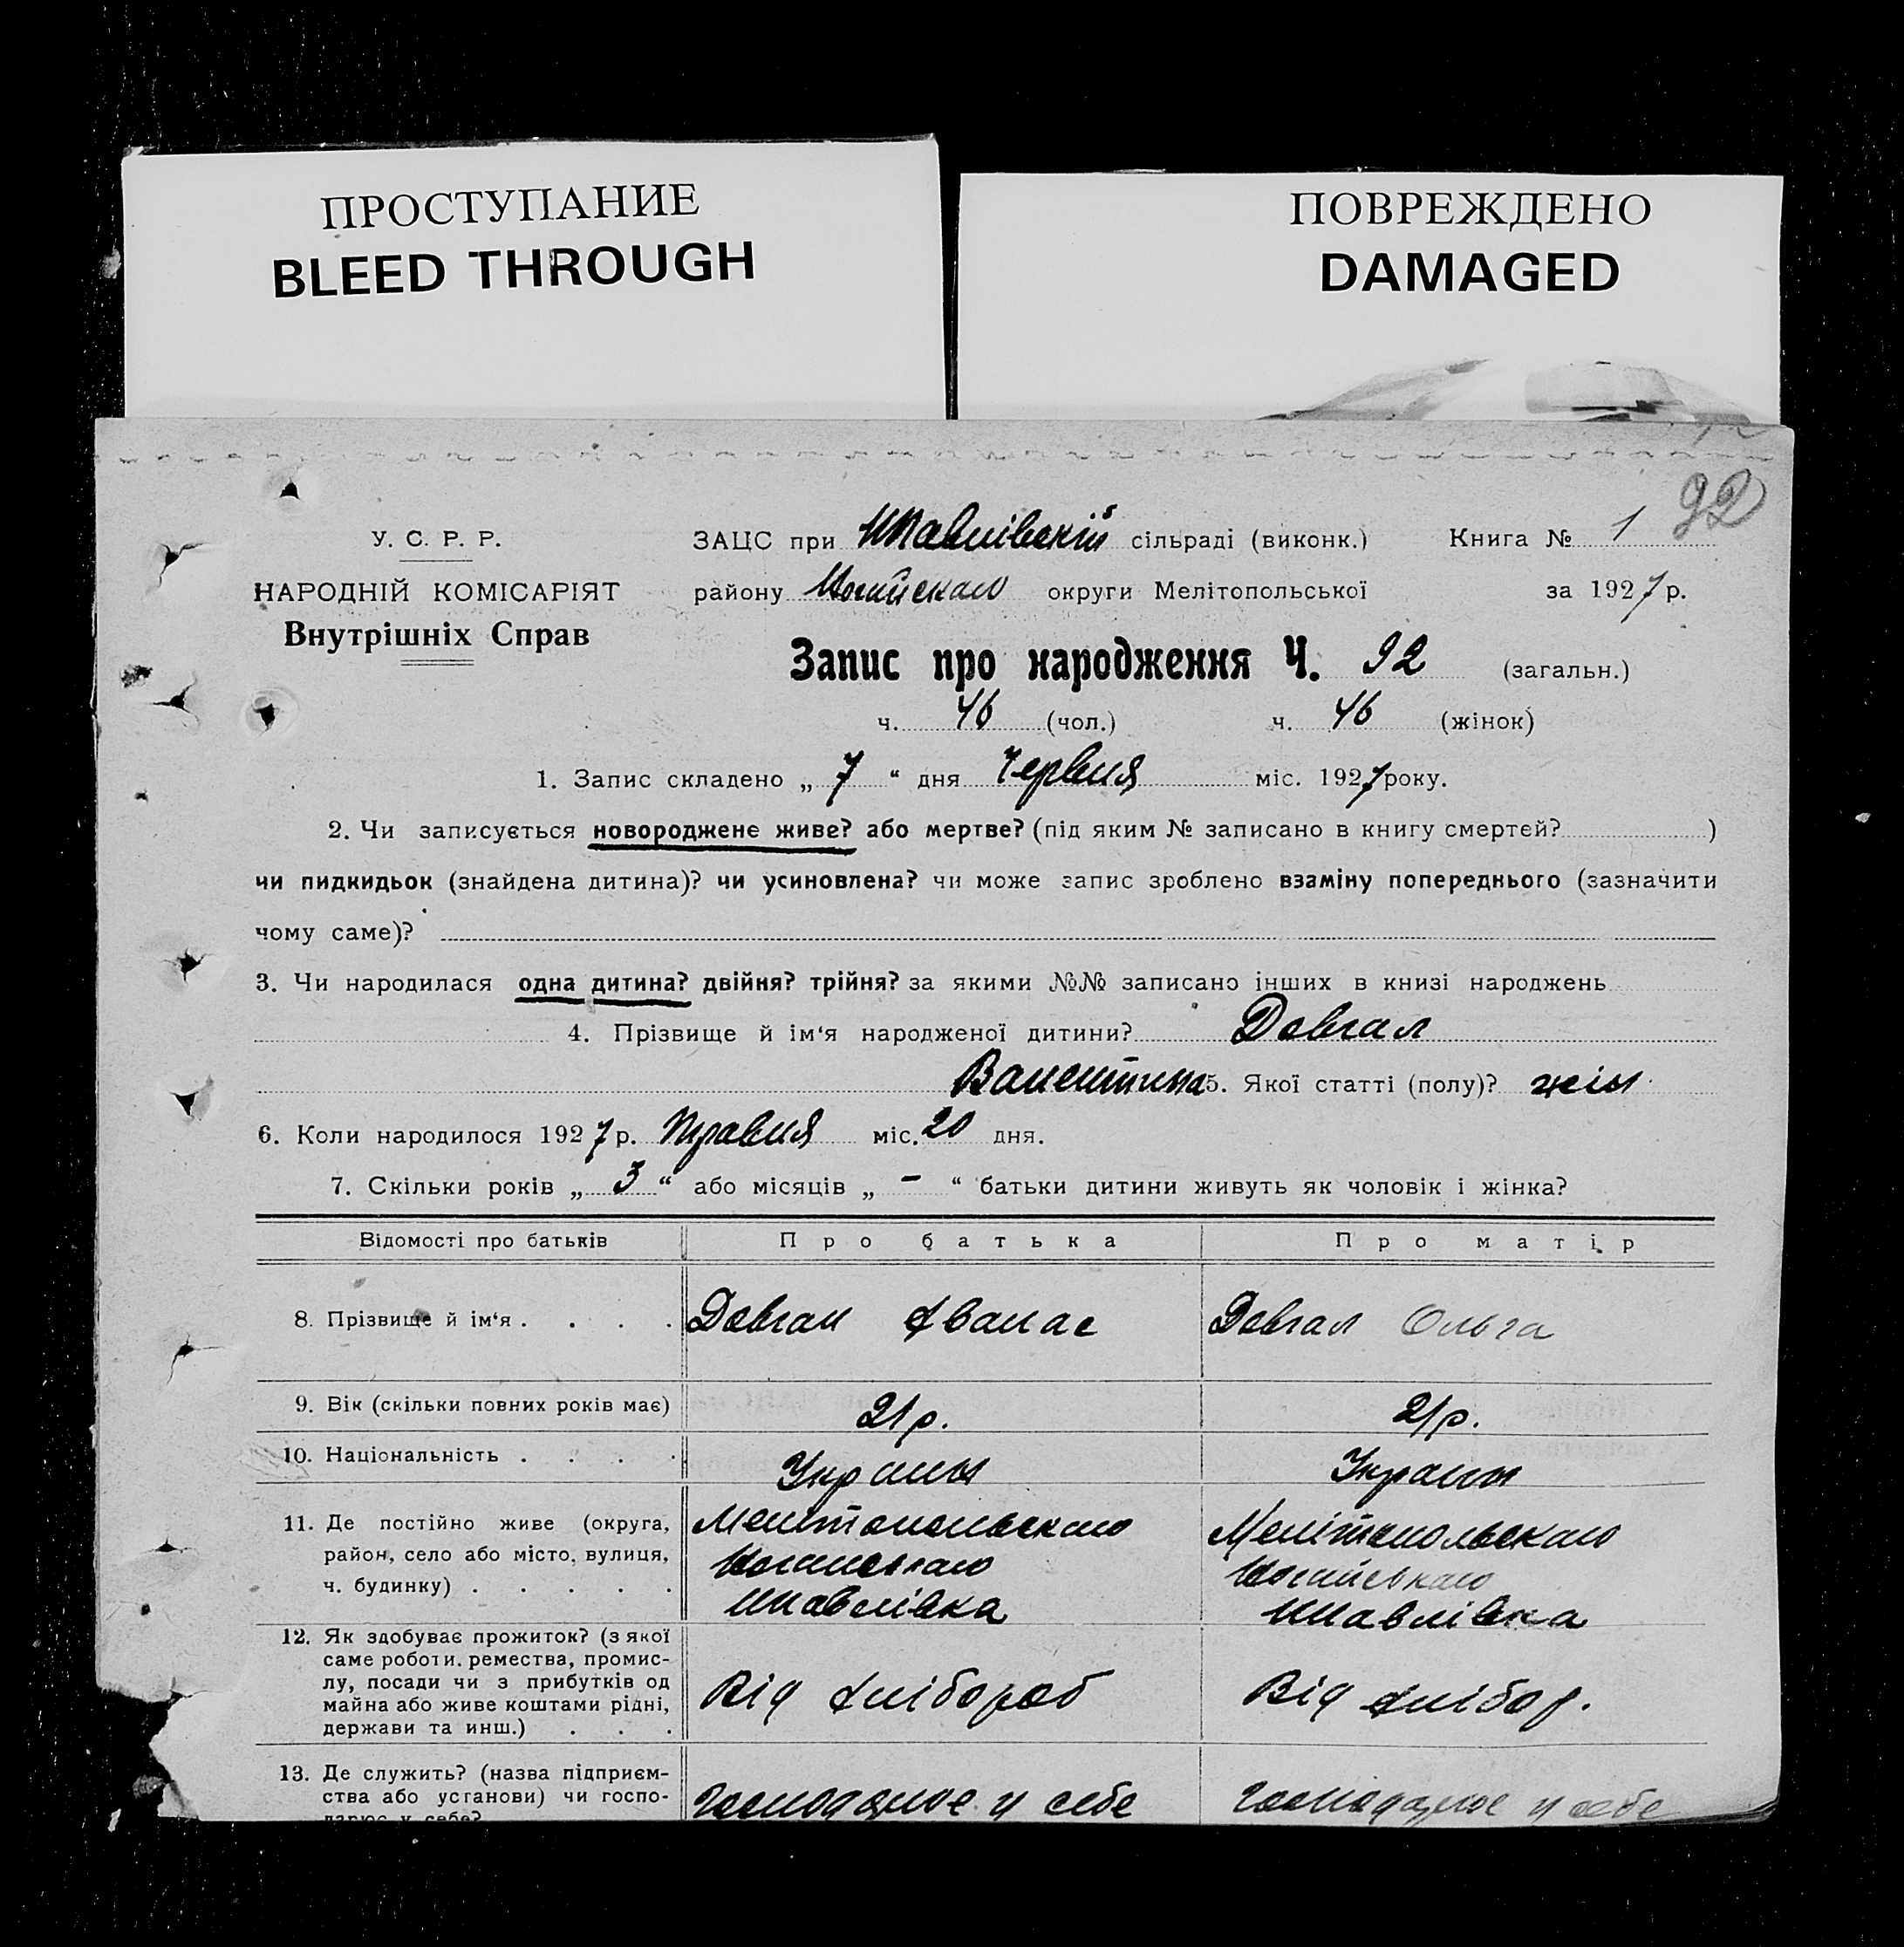 ПРОСТУПАНИЕ
BLEED THROUGH
ПОВРЕЖДЕНО
DAMAGED
92
У. С. Р. Р.
НАРОДНІЙ КОМІСАРІЯТ
Внутрішніх Справ
ЗАЦС при сільраді (виконк.) Книга № 1
району округи Мелітопольської за 1927 р.
Запис про народження Ч. 92 (загальн.)
ч. 46 (чол.) ч. 46 (жінок)
1. Запис складено „ 7 “ дня Червня міс. 1927 року.
2. Чи записується новороджене живе? або мертве? (під яким № записано в книгу смертей? )
чи пидкидьок (знайдена дитина)? чи усиновлена? чи може запис зроблено взаміну попереднього (зазначити
чому саме)?
3. Чи народилася одна дитина? двійня? трійня? за якими №№ записано інших в книзі народжень
4. Прізвище й ім‘я народженої дитини? Довгал
Валентина 5. Якої статті (полу)? жін.
6. Коли народилося 1927 р. Травня міс. 20 дня.
7. Скільки років „ 3 “ або місяців „ – “ батьки дитини живуть як чоловік і жінка?
Відомості про батьків Про батька Про матір
8. Прізвище й ім‘я . . . . Довгал Опанас Довгал Ольга
9. Вік (скільки повних років має) 21 р. 21 р.
10. Національність . . . .
11. Де постійно живе (округа,
район, село або місто, вулиця,
ч. будинку) . . . . .
Мелітопольського
Мелітопольського
12. Як здобуває прожиток? (з якої
саме роботи. ремества, промис-
лу, посади чи з прибутків од
майна або живе коштами рідні,
держави та инш.) . . .
Від хлібороб Від хлібор.
13. Де служить? (назва підприєм-
ства або установи) чи госпо-
дарює у себе?
господарює у себе господарює у себе